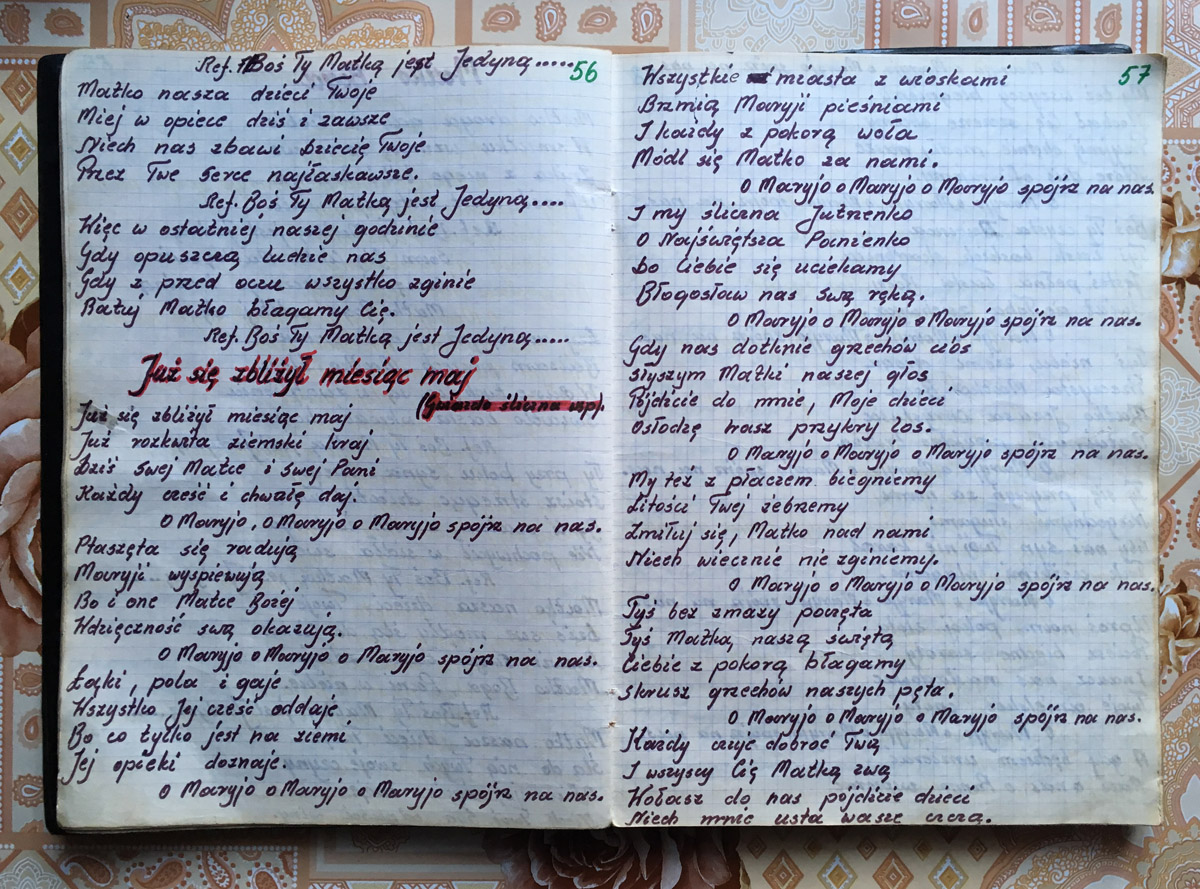 Ref. Boś Ty Matką jest Jedyną.....
56
Matko nasza dzieci Twoje
Miej w opiece dziś i zawsze
Niech nas zbawi Dziecię Twoje
Przez Twe Serce najłaskawsze.
Ref. Boś Ty Matką jest Jedyną....
Więc w ostatniej naszej godzinie
Gdy opuszczą ludzie nas
Gdy z przed oczu wszystko zginie
Ratuj Matko błagamy Cię.
Ref. Boś Ty Matką jest Jedyną.....
Już się zbliżył miesiąc maj
(Gwiazdo śliczna wsp).
Już się zbliżył miesiąc maj
Już rozkwita ziemski kraj
Dziś swej Matce i swej Pani
Każdy cześć i chwałę daj.
O Maryjo, O Maryjo o Maryjo spójrz na nas.
Ptaszęta się radują
Maryji wyspiewują
Bo i one Matce Bożej
Wdzięczność swą okazują.
O Maryjo o Maryjo o Maryjo spójrz na nas.
Łąki, pola i gaje
Wszystko Jej cześć oddaje
Bo co tylko jest na ziemi
Jej opieki doznaje.
O Maryjo o Maryjo o Maryjo spójrz na nas.
57
Wszystkie miasta z wioskami
Brzmią Maryji pieśniami
I każdy z pokorą woła
Módl się Matko za nami.
O Maryjo o Maryjo o Maryjo spójrz na nas.
I my śliczna Jutrzenko
O Najświętsza Panienko
Do Ciebie się uciekamy
Błogosław nas swą ręką.
O Maryjo o Maryjo o Maryjo spójrz na nas.
Gdy nas dotknie grzechów cios
słyszym Matki naszej głos
Pójdźcie do mnie, Moje dzieci
Osłodzę wasz przykry los.
O Maryjo o Maryjo o Maryjo spójrz na nas.
My też z płaczem biegniemy
Litości Twej żebrzemy
Zmiłuj się, Matko nad nami
Niech wiecznie nie zginiemy.
O Maryjo o Maryjo o Maryjo spójrz na nas.
Tyś bez zmazy poczęta
Tyś Matką naszą świętą
Ciebie z pokorą błagamy
skrusz grzechów naszych pęta.
O Maryjo o Maryjo o Maryjo spójrz na nas.
Każdy czuje dobroć Twą
I wszyscy Cię Matką zwą
Wołasz do nas pójdźcie dzieci
Niech mnie usta wasze czczą.